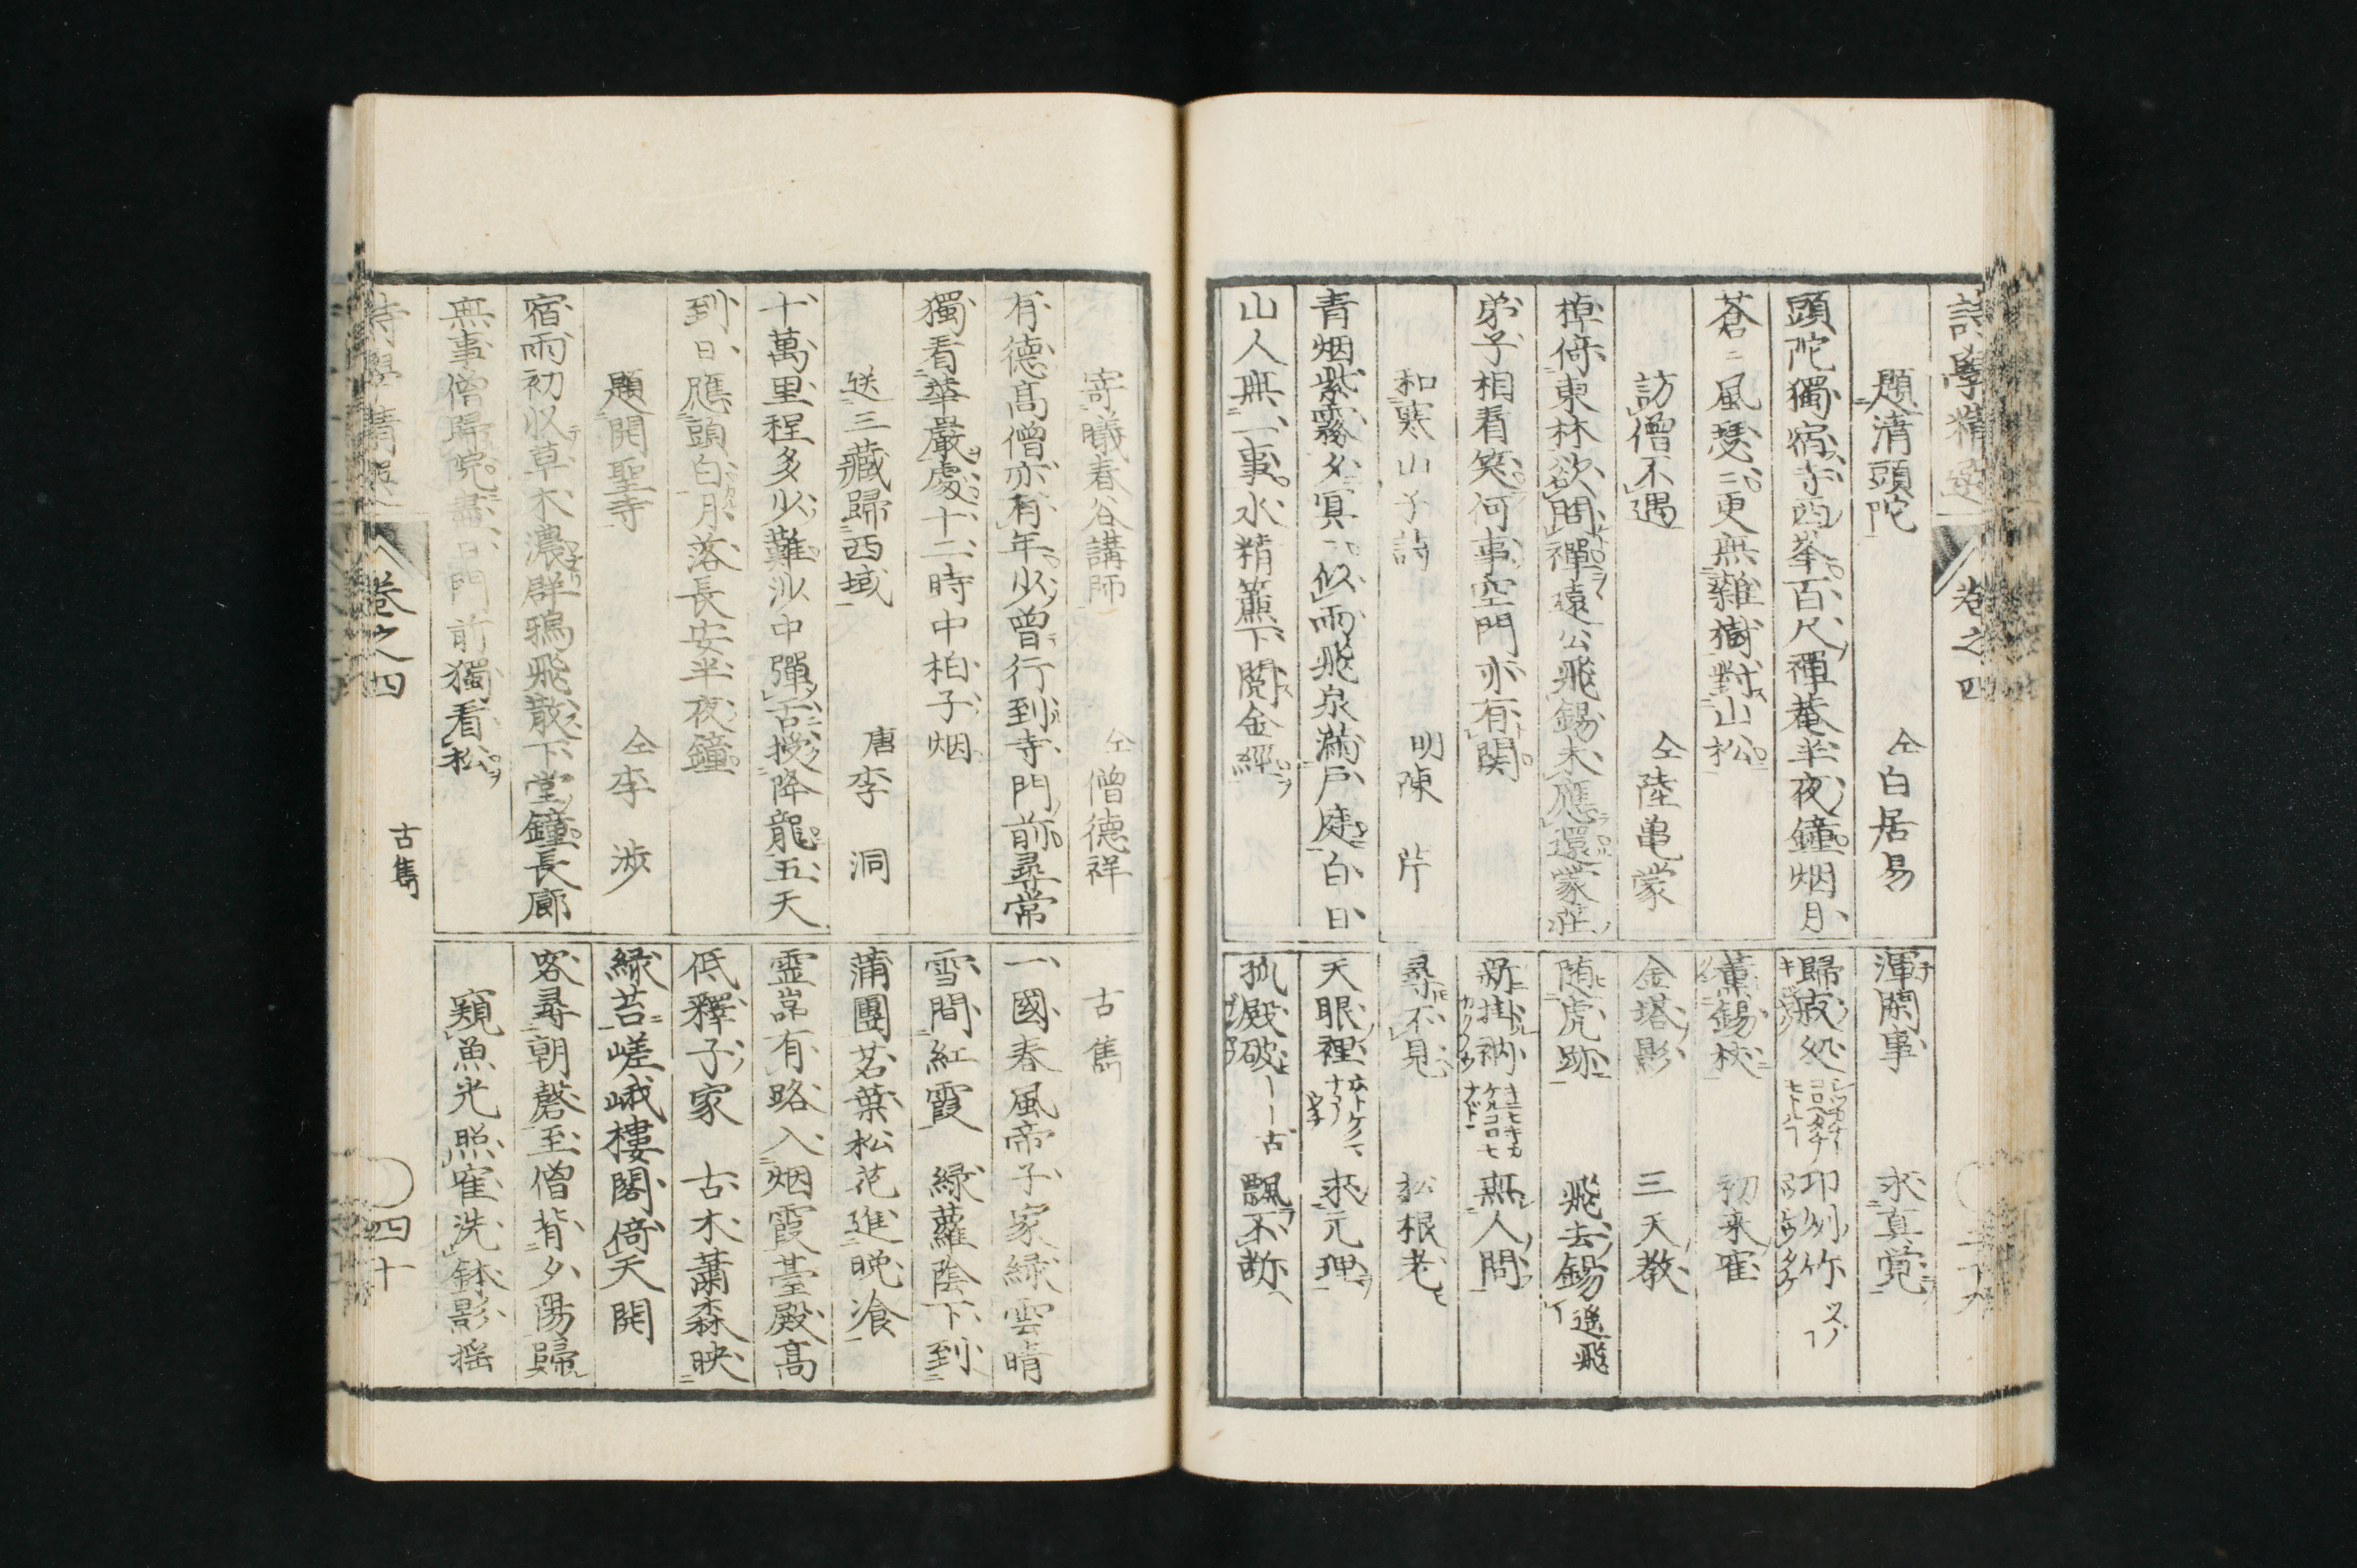 題清頭陀 仝白居易
頭陀獨宿寺西峯百尺禪菴半夜鐘烟月
蒼〻風瑟〻更無雜樹對山松
訪僧不遇 仝陸亀蒙
棹倚東林欲問禪遠公飛錫未應還蒙荘
弟子相看笑何事空門亦有関
和寒山子詩 明陳芹
青烟紫霧夕冥〻似雨飛泉滿戸庭白日
山人無一事水精簾下閲金經
渾閑事 求真覚
歸寂処 卭州竹
薫錫杖 初来寉
金塔影 三天教
随虎跡 飛去錫 遙飛
新掛衲 無人問
尋不見 松根老
天眼裡 求元理
孤殿破 飄不断
寄曦春谷講師 仝僧德祥
有德髙僧亦有年少曽行到寺門前尋常
獨看華嚴處十二時中柏子烟
送三藏歸西域 唐李洞
十萬里程多少難沙中彈舌授降龍五天
到日應頭白月落長安半夜鐘
題開聖寺 仝李渉
宿雨初収草木濃群鴉飛散下堂鐘長廊
無事僧歸院盡日門前獨看松
古雋
一國春風帝子家緑雲晴
雪間紅霞 緑蘿陰下到
蒲團茗葉松花進晩飡
霊巣有路入烟霞臺殿髙
低釋子家 古木蕭森映
緑苔嵯峨樓閣倚天開
客尋朝磬至僧背夕陽歸
窺魚光照寉洗鉢影揺
卷之四
四十
古雋